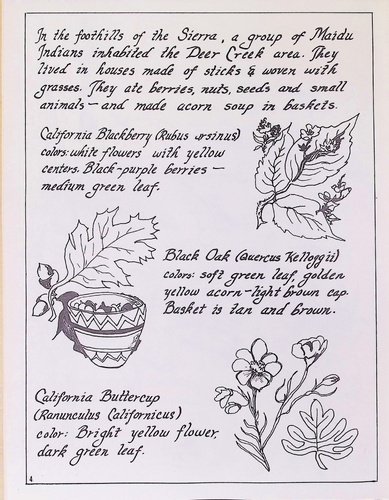 In the foothills of the Sierra, a group of Maidu
Indians inhabited the Deer Creek area. They
lived in houses made of sticks & woven with
grasses. They ate berries, nuts, seeds and small
animals — and made acorn soup in baskets.
California Blackberry (Rubus ursinus)
colors: white flowers with yellow
centers. Black-purple berries —
medium green leaf.
Black Oak (Quercus Kelloggii)
colors: soft green leaf, golden
yellow acorn - light brown cap.
Basket is tan and brown.
California Buttercup
(Ranunculus Californicus)
color: Bright yellow flower,
dark green leaf.
4